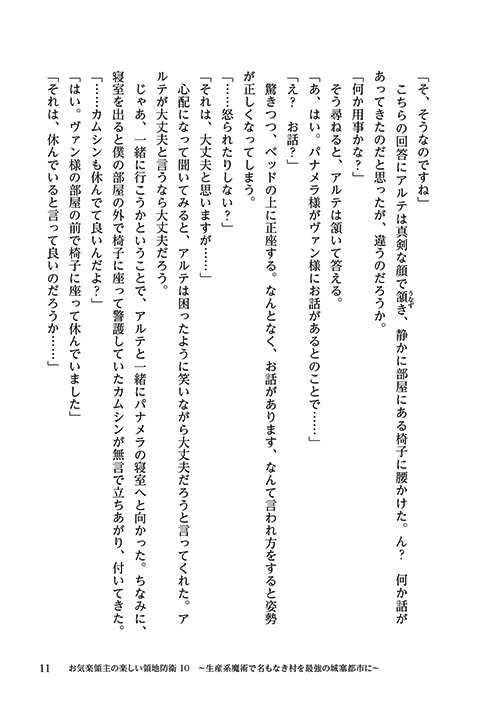 「そ、そうなのですね」
　こちらの回答にアルテは真剣な顔で頷き、静かに部屋にある椅子に腰かけた。ん？　何か話が
あってきたのだと思ったが、違うのだろうか。
「何か用事かな？」
　そう尋ねると、アルテは頷いて答える。
「あ、はい。パナメラ様がヴァン様にお話があるとのことで……」
「え？　お話？」
　驚きつつ、ベッドの上に正座する。なんとなく、お話があります、なんて言われ方をすると姿勢
が正しくなってしまう。
「……怒られたりしない？」
「それは、大丈夫と思いますが……」
　心配になって聞いてみると、アルテは困ったように笑いながら大丈夫だろうと言ってくれた。ア
ルテが大丈夫と言うなら大丈夫だろう。
　じゃあ、一緒に行こうかということで、アルテと一緒にパナメラの寝室へと向かった。ちなみに、
寝室を出ると僕の部屋の外で椅子に座って警護していたカムシンが無言で立ちあがり、付いてきた。
「……カムシンも休んでて良いんだよ？」
「はい。ヴァン様の部屋の前で椅子に座って休んでいました」
「それは、休んでいると言って良いのだろうか……」
うなず
11　お気楽領主の楽しい領地防衛 10　～生産系魔術で名もなき村を最強の城塞都市に～